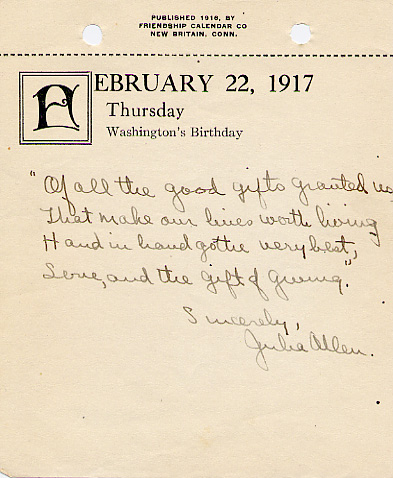 PUBLISHED 1916, BY
FRIENDSHIP CALENDAR CO
NEW BRITAIN, CONN.
FEBRUARY 22, 1917
Thursday
Washington's Birthday
"Of all the good gifts granted us
That make our lives worth living
Hand in hand go the very best,
Love, and the gift of giving."
Sincerely,
Julia Allen.